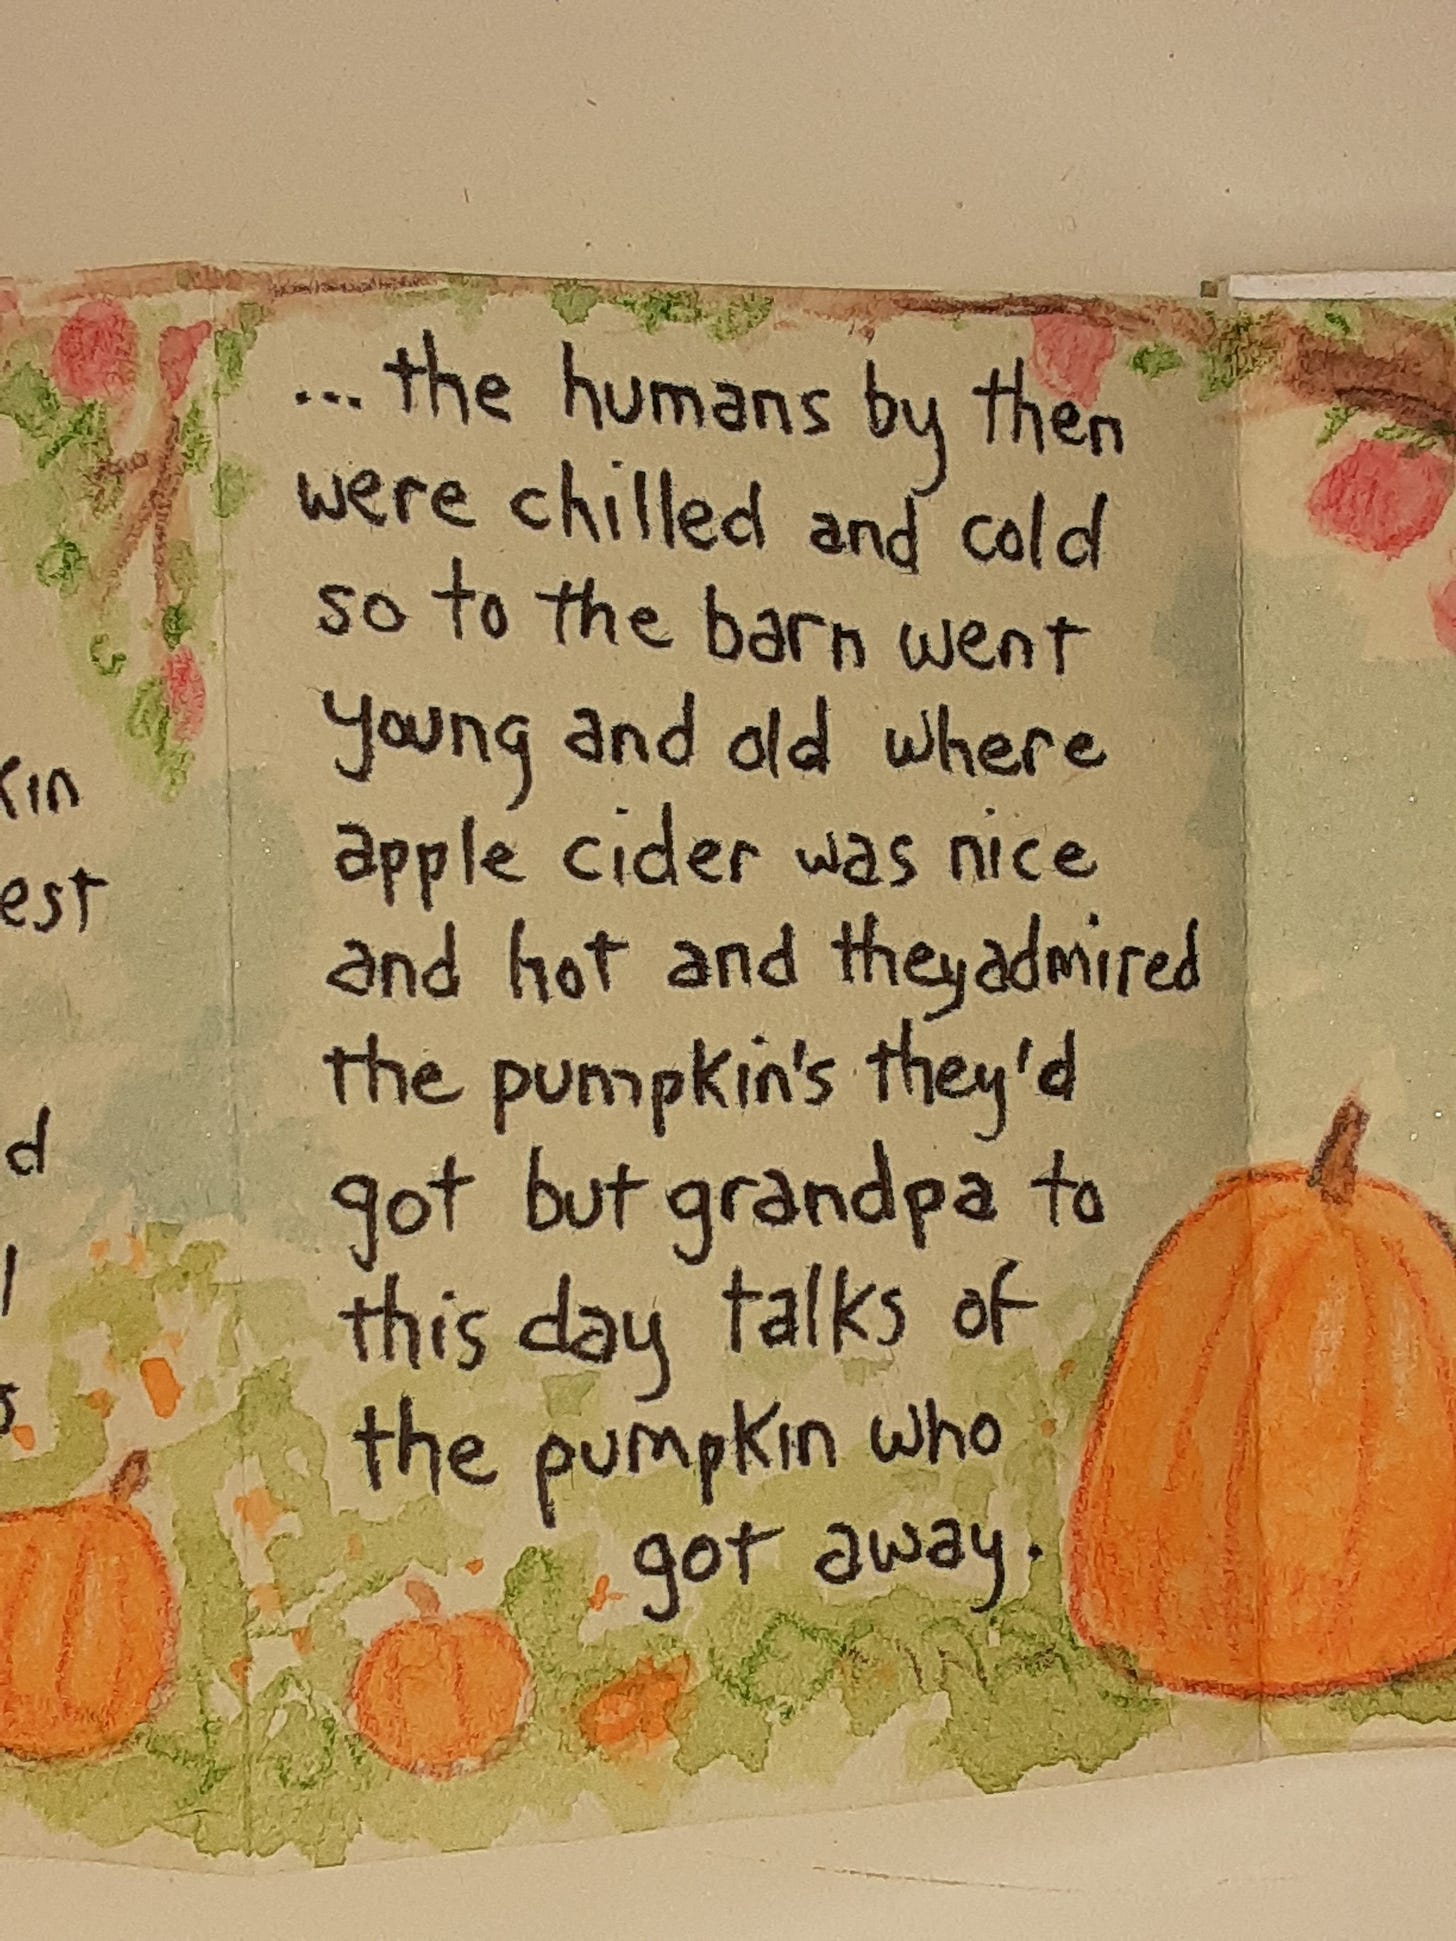 ... the humans by then
were chilled and cold
so to the barn went
young and old where
apple cider was nice
and hot and they admired
the pumpkin's they'd
got but grandpa to
this day talks of
the pumpkin who
got away.